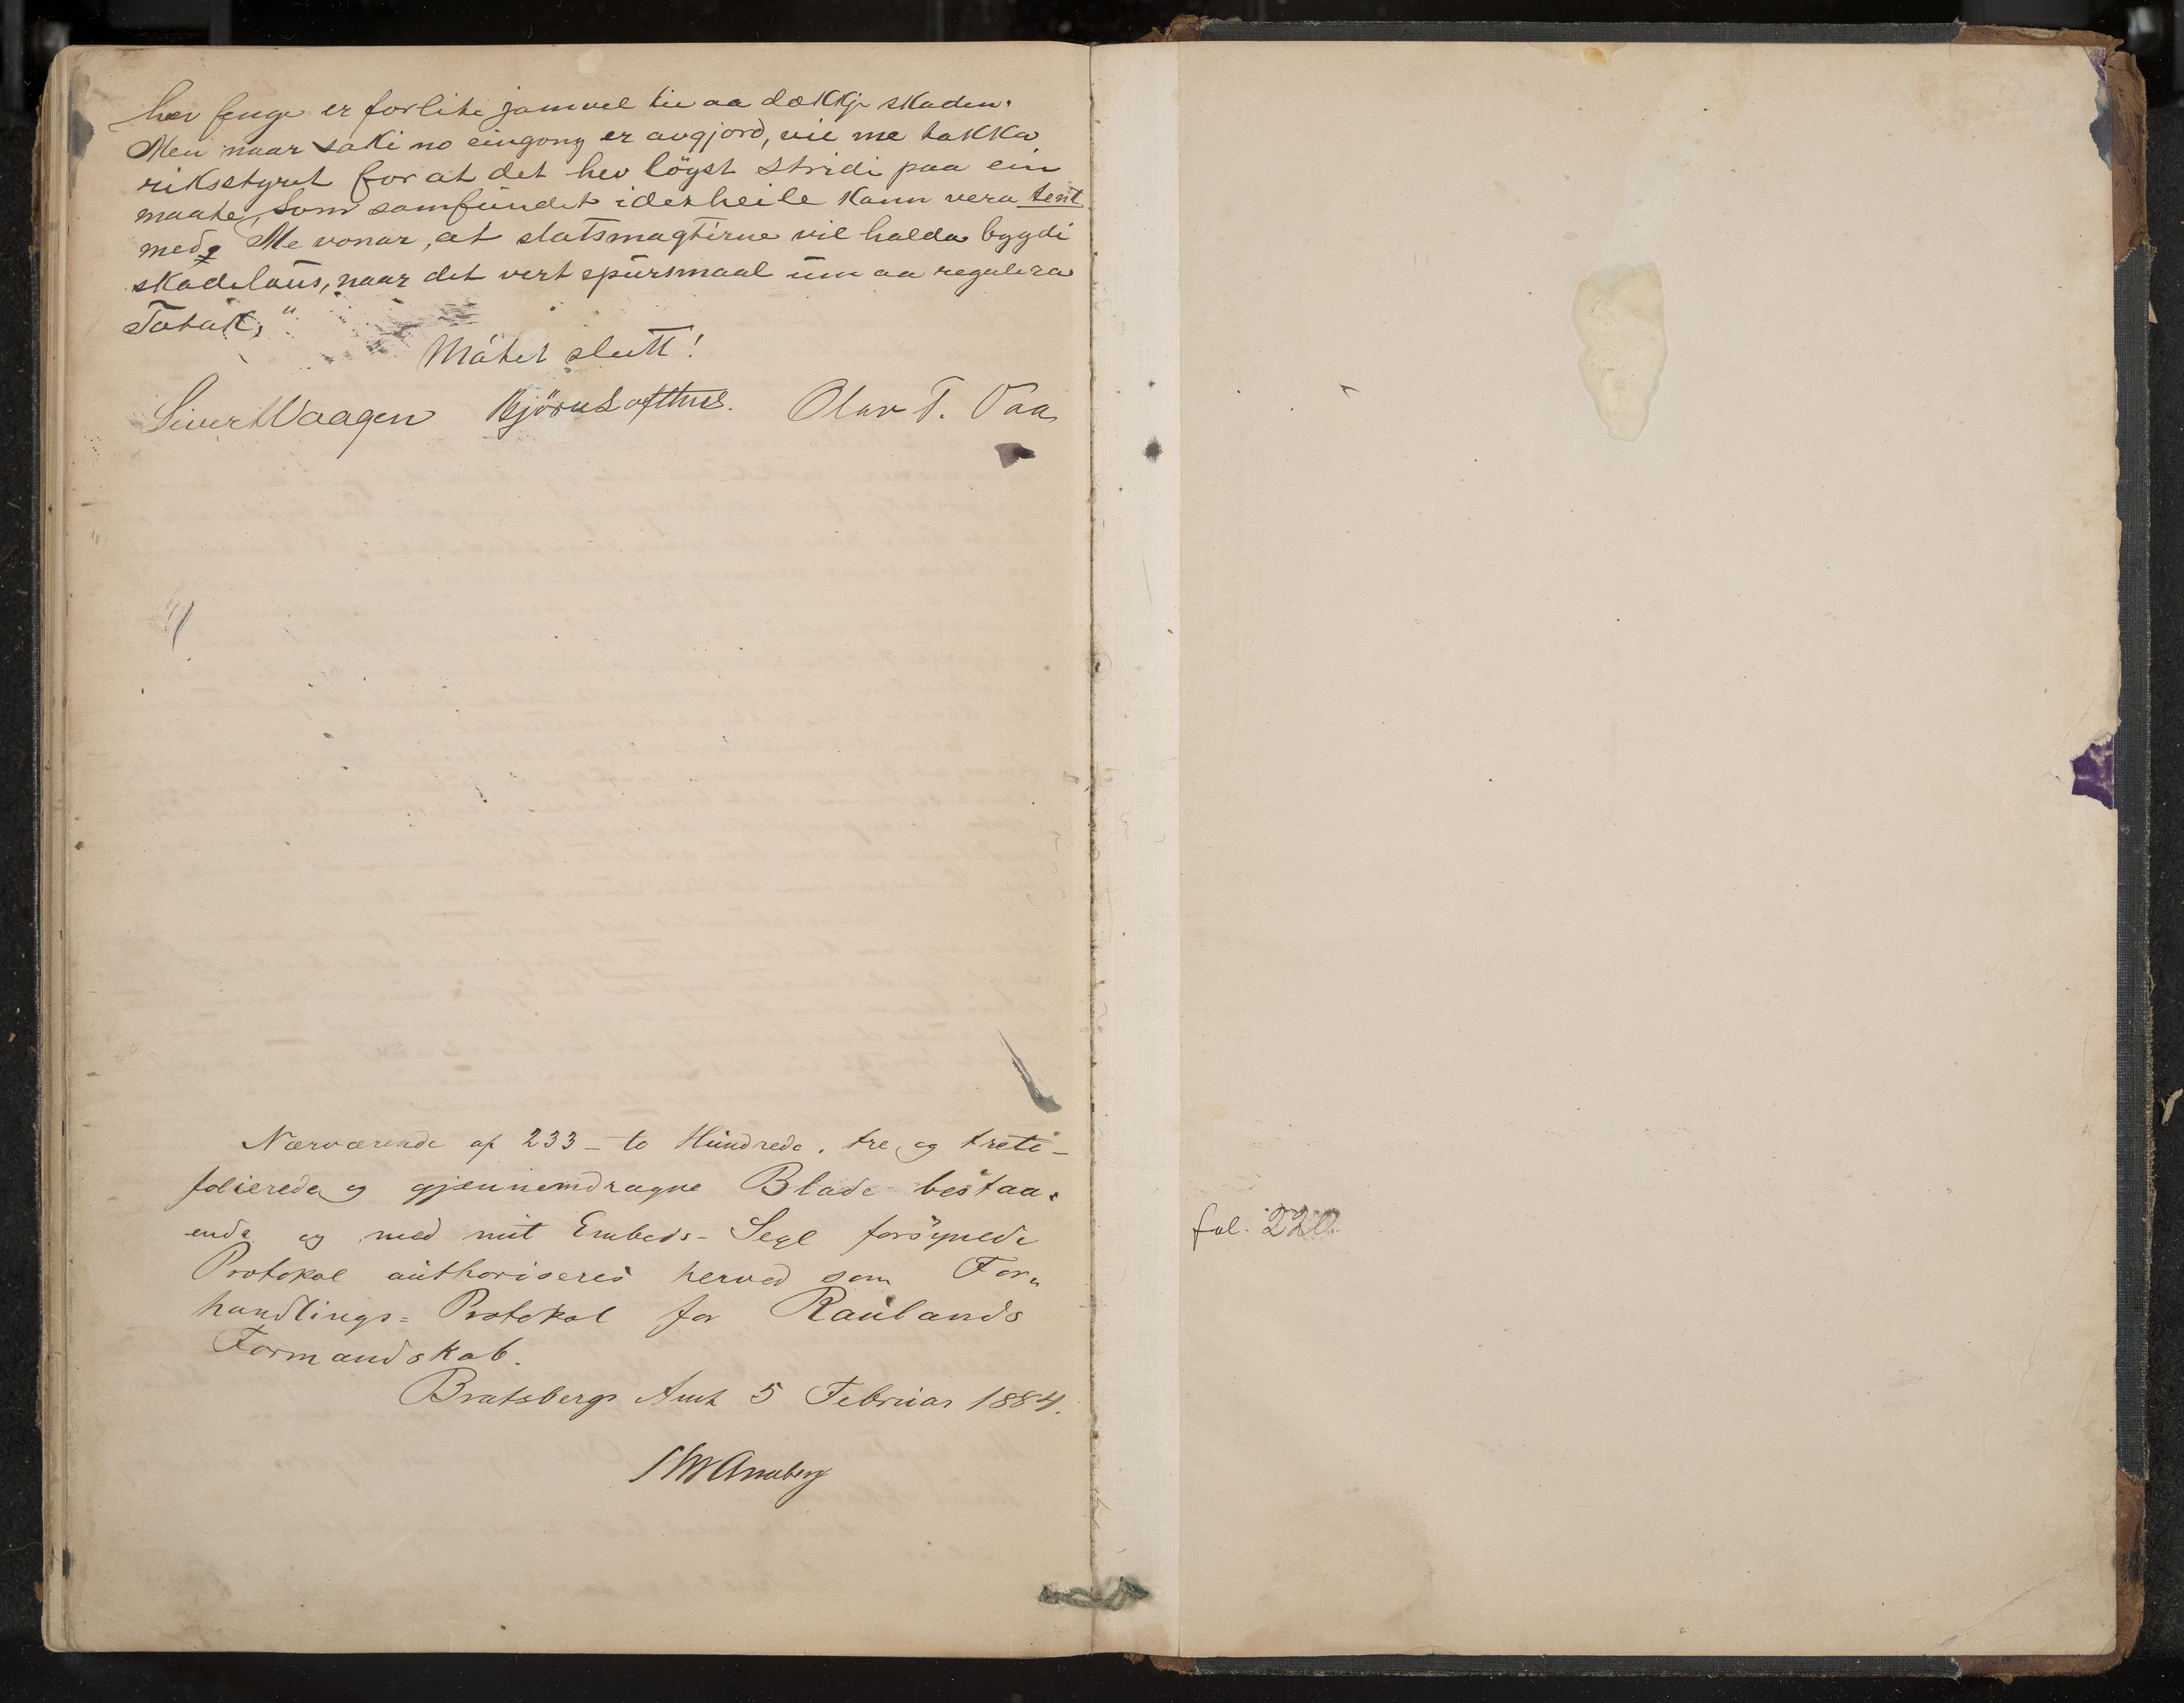 hev fenge er forlite jamvel til aa dekkje skaden.
Men naar saki no eingong er avgjord, vil me takka
riksstyret for at det hev löyst stridi paa ein
maate, som samfundet iderheile kann vera tent
med. Me vonar, at statsmagterne vil halda bygdi
skadelaus, naar det vert spursmaal um aa regulera
Totak."
Mötet slutt!
Sivert Vaagen Björn Lofthus. Olav T. Vaa
Nærværende af 233 - to Hundrede, tre og treti -
folierede og gjennemdragne Blade bestaa-
ende og med mit Embeds-Segl forsynede
Protokol authoriseres herved som For-
handlings-Protokol for Raulands
Formandskab.
Bratsbergs Amt 5 Februar 1884.
fol. 220